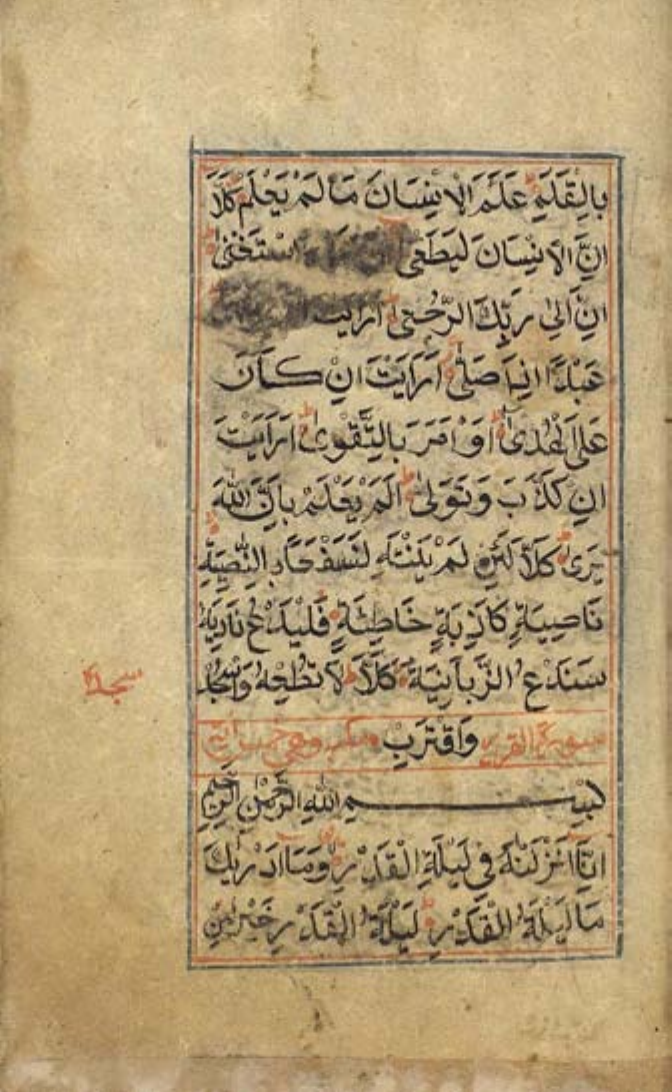 بِالْقَلَمِ عَلَّمَ الْاِنْسَانَ مَا لَمْ يَعْلَمْ كَلَّا
اِنَّ الْاِنْسَانَ لَيَطْغٰى اسْتَغْنٰى
اِنَّ اِلٰى رَبِّكَ الرُّجْعٰى اَرَاَيْتَ
عَبْدًا اِذَا صَلّٰى اَرَاَيْتَ اِنْ كَانَ
عَلَى الْهُدٰى اَوْ اَمَرَ بِالتَّقْوٰى اَرَاَيْتَ
اِنْ كَذَّبَ وَتَوَلّٰى اَلَمْ يَعْلَمْ بِاَنَّ اللّٰهَ
يَرٰى كَلَّا لَئِنْ لَمْ يَنْتَهِ لَنَسْفَعًا بِالنَّاصِيَةِ
نَاصِيَةٍ كَاذِبَةٍ خَاطِئَةٍ فَلْيَدْعُ نَادِيَهُ
سَنَدْعُ الزَّبَانِيَةَ كَلَّا لَا تُطِعْهُ وَاسْجُدْ
وَاقْتَرِبْ
سجدة
سورة القدر وهي خمس آية
بِسْمِ اللّٰهِ الرَّحْمٰنِ الرَّحِيْمِ
اِنَّا اَنْزَلْنٰهُ فِى لَيْلَةِ الْقَدْرِ وَمَا اَدْرٰىكَ
مَا لَيْلَةُ الْقَدْرِ لَيْلَةُ الْقَدْرِ خَيْرٌ مِنْ